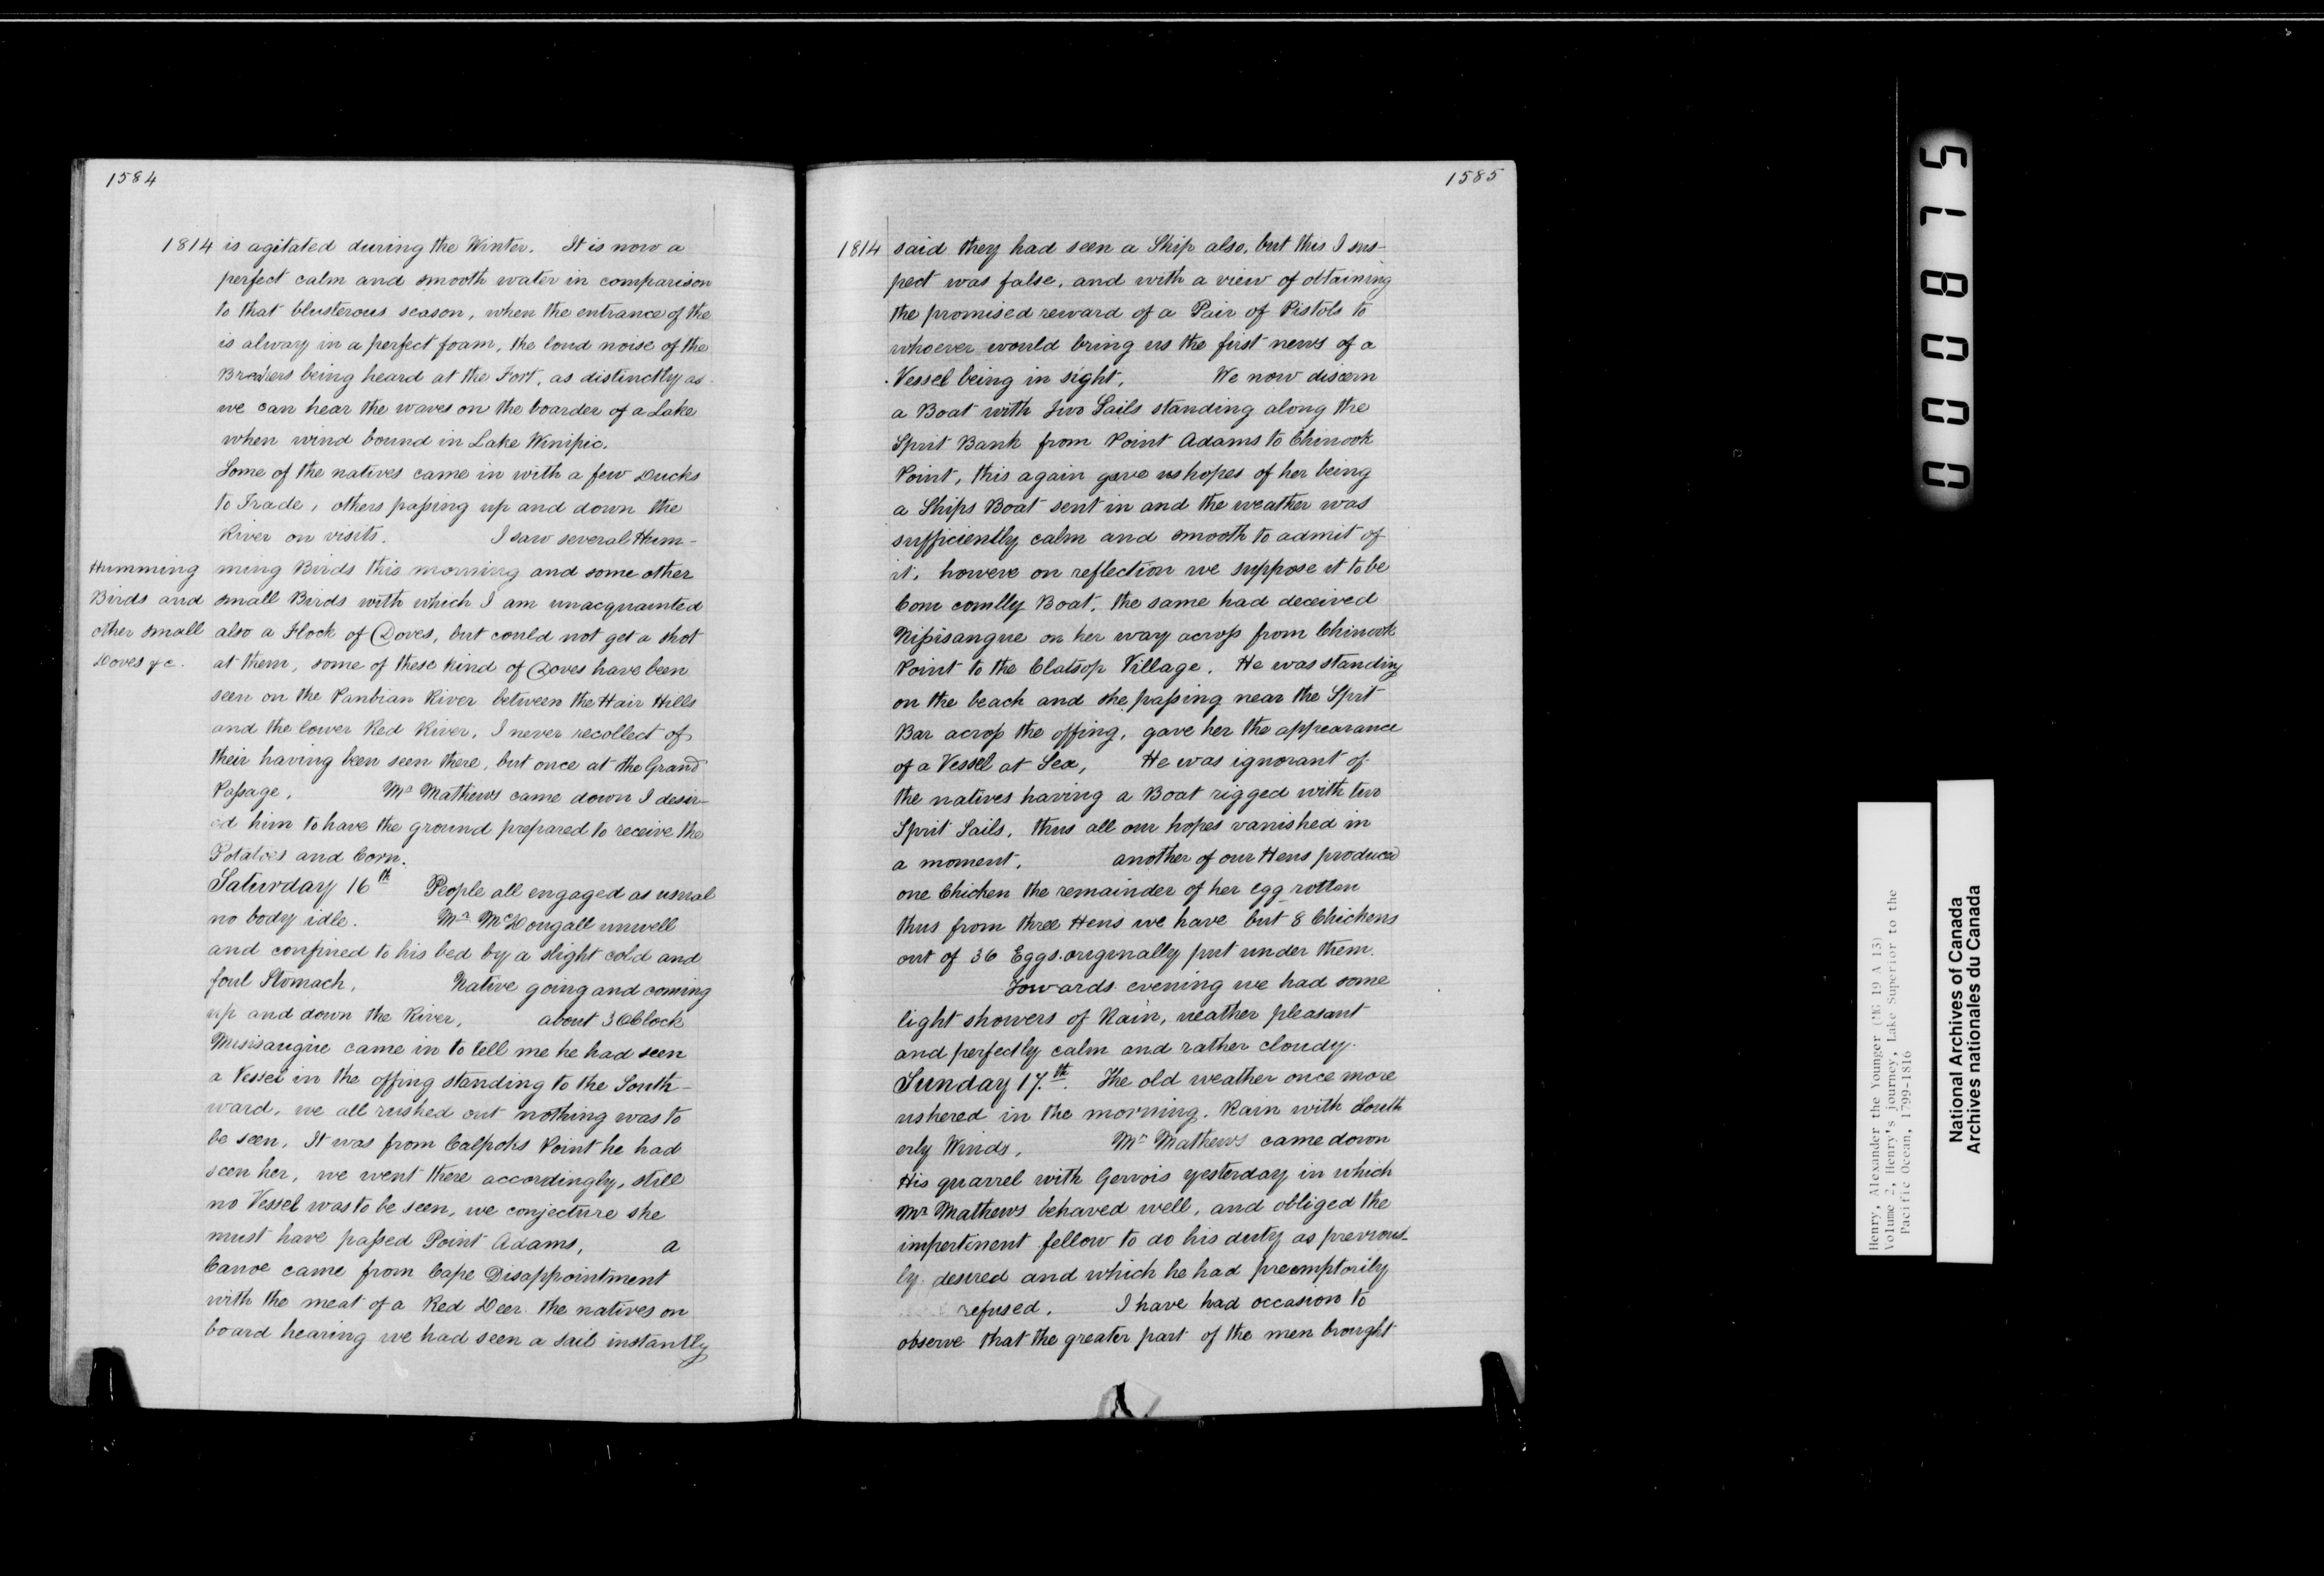 1584
1814 is agitated during the Winter. It is now a
perfect calm and smooth water in comparison
to that blusterous season, when the entrance of the
is alway in a perfect foam, the loud noise of the
being heard at the Fort, as distinctly as
we can hear the waves on the boarder of a Lake
when wind bound in Lake Winipic.
Some of the natives came in with a few Ducks
to Trade, others passing up and down the
River on visits. I saw several Hum-
Humming
Birds and
other small
Doves &c.
ming Birds this morning and some other
small Birds with which I am unacquainted
also a Flock of Doves, but could not get a shot
at them, some of these kind of Doves have been
seen on the Panbian River between the Hair Hills
and the lower Red River, I never recollect of
their having been seen there, but once at the Grand
Passage. Mr Mathews came down I desir-
ed him to have the ground prepared to receive the
Potatoes and Corn.
Saturday 16th People all engaged as usual
no body idle. Mr McDougall unwell
and confined to his bed by a slight cold and
foul Stomach, Native going and coming
up and down the River, about 3 OClock
came in to tell me he had seen
a Vessel in the offing standing to the South-
ward, we all rushed out nothing was to
be seen, It was from Point he had
seen her, we went there accordingly, still
no Vessel was to be seen, we conjecture she
must have passed Point Adams, a
Canoe came from Cape Disappointment
with the meat of a Red Deer the natives on
board hearing we had seen a sail instantly
1585
1814 said they had seen a Ship also, but this I sus-
pect was false, and with a view of obtaining
the promised reward of a Pair of Pistols to
whoever would bring us the first news of a
Vessel being in sight. We now discern
a Boat with two Sails standing along the
Sprit Bank from Point Adams to Chinook
Point, this again gave us hopes of her being
a Ships Boat sent in and the weather was
sufficiently calm and smooth to admit of
it, howere on reflection we suppose it to be
Com comlly Boat, the same had deceived
Nipisangue on her way across from Chinook
Point to the Clatsop Village. He was standing
on the beach and she passing near the Sprit
Bar across the offing, gave her the appearance
of a Vessel at Sea, He was ignorant of
the natives having a Boat rigged with two
Sprit Sails, thus all our hopes vanished in
a moment. another of our Hens produced
one Chicken the remainder of her egg rotten
thus from three Hens we have but 8 Chickens
out of 36 Eggs originally put under them.
Towards evening we had some
light showers of Rain, weather pleasant
and perfectly calm and rather cloudy.
Sunday 17.th. The old weather once more
ushered in the morning. Rain with South
erly Winds, Mr Mathews came down
His quarrel with Gervois yesterday in which
Mr Mathews behaved well, and obliged the
impertinent fellow to do his duty as previous-
ly desired and which he had preemptorily
refused. I have had occasion to
observe that the greater part of the men brought
000875
Henry, Alexander the Younger (MG 19 A 13)
Volume 2, Henry's journey, Lake Superior to the
Pacific Ocean, 1799-1816
National Archives of Canada
Archives nationales du Canada